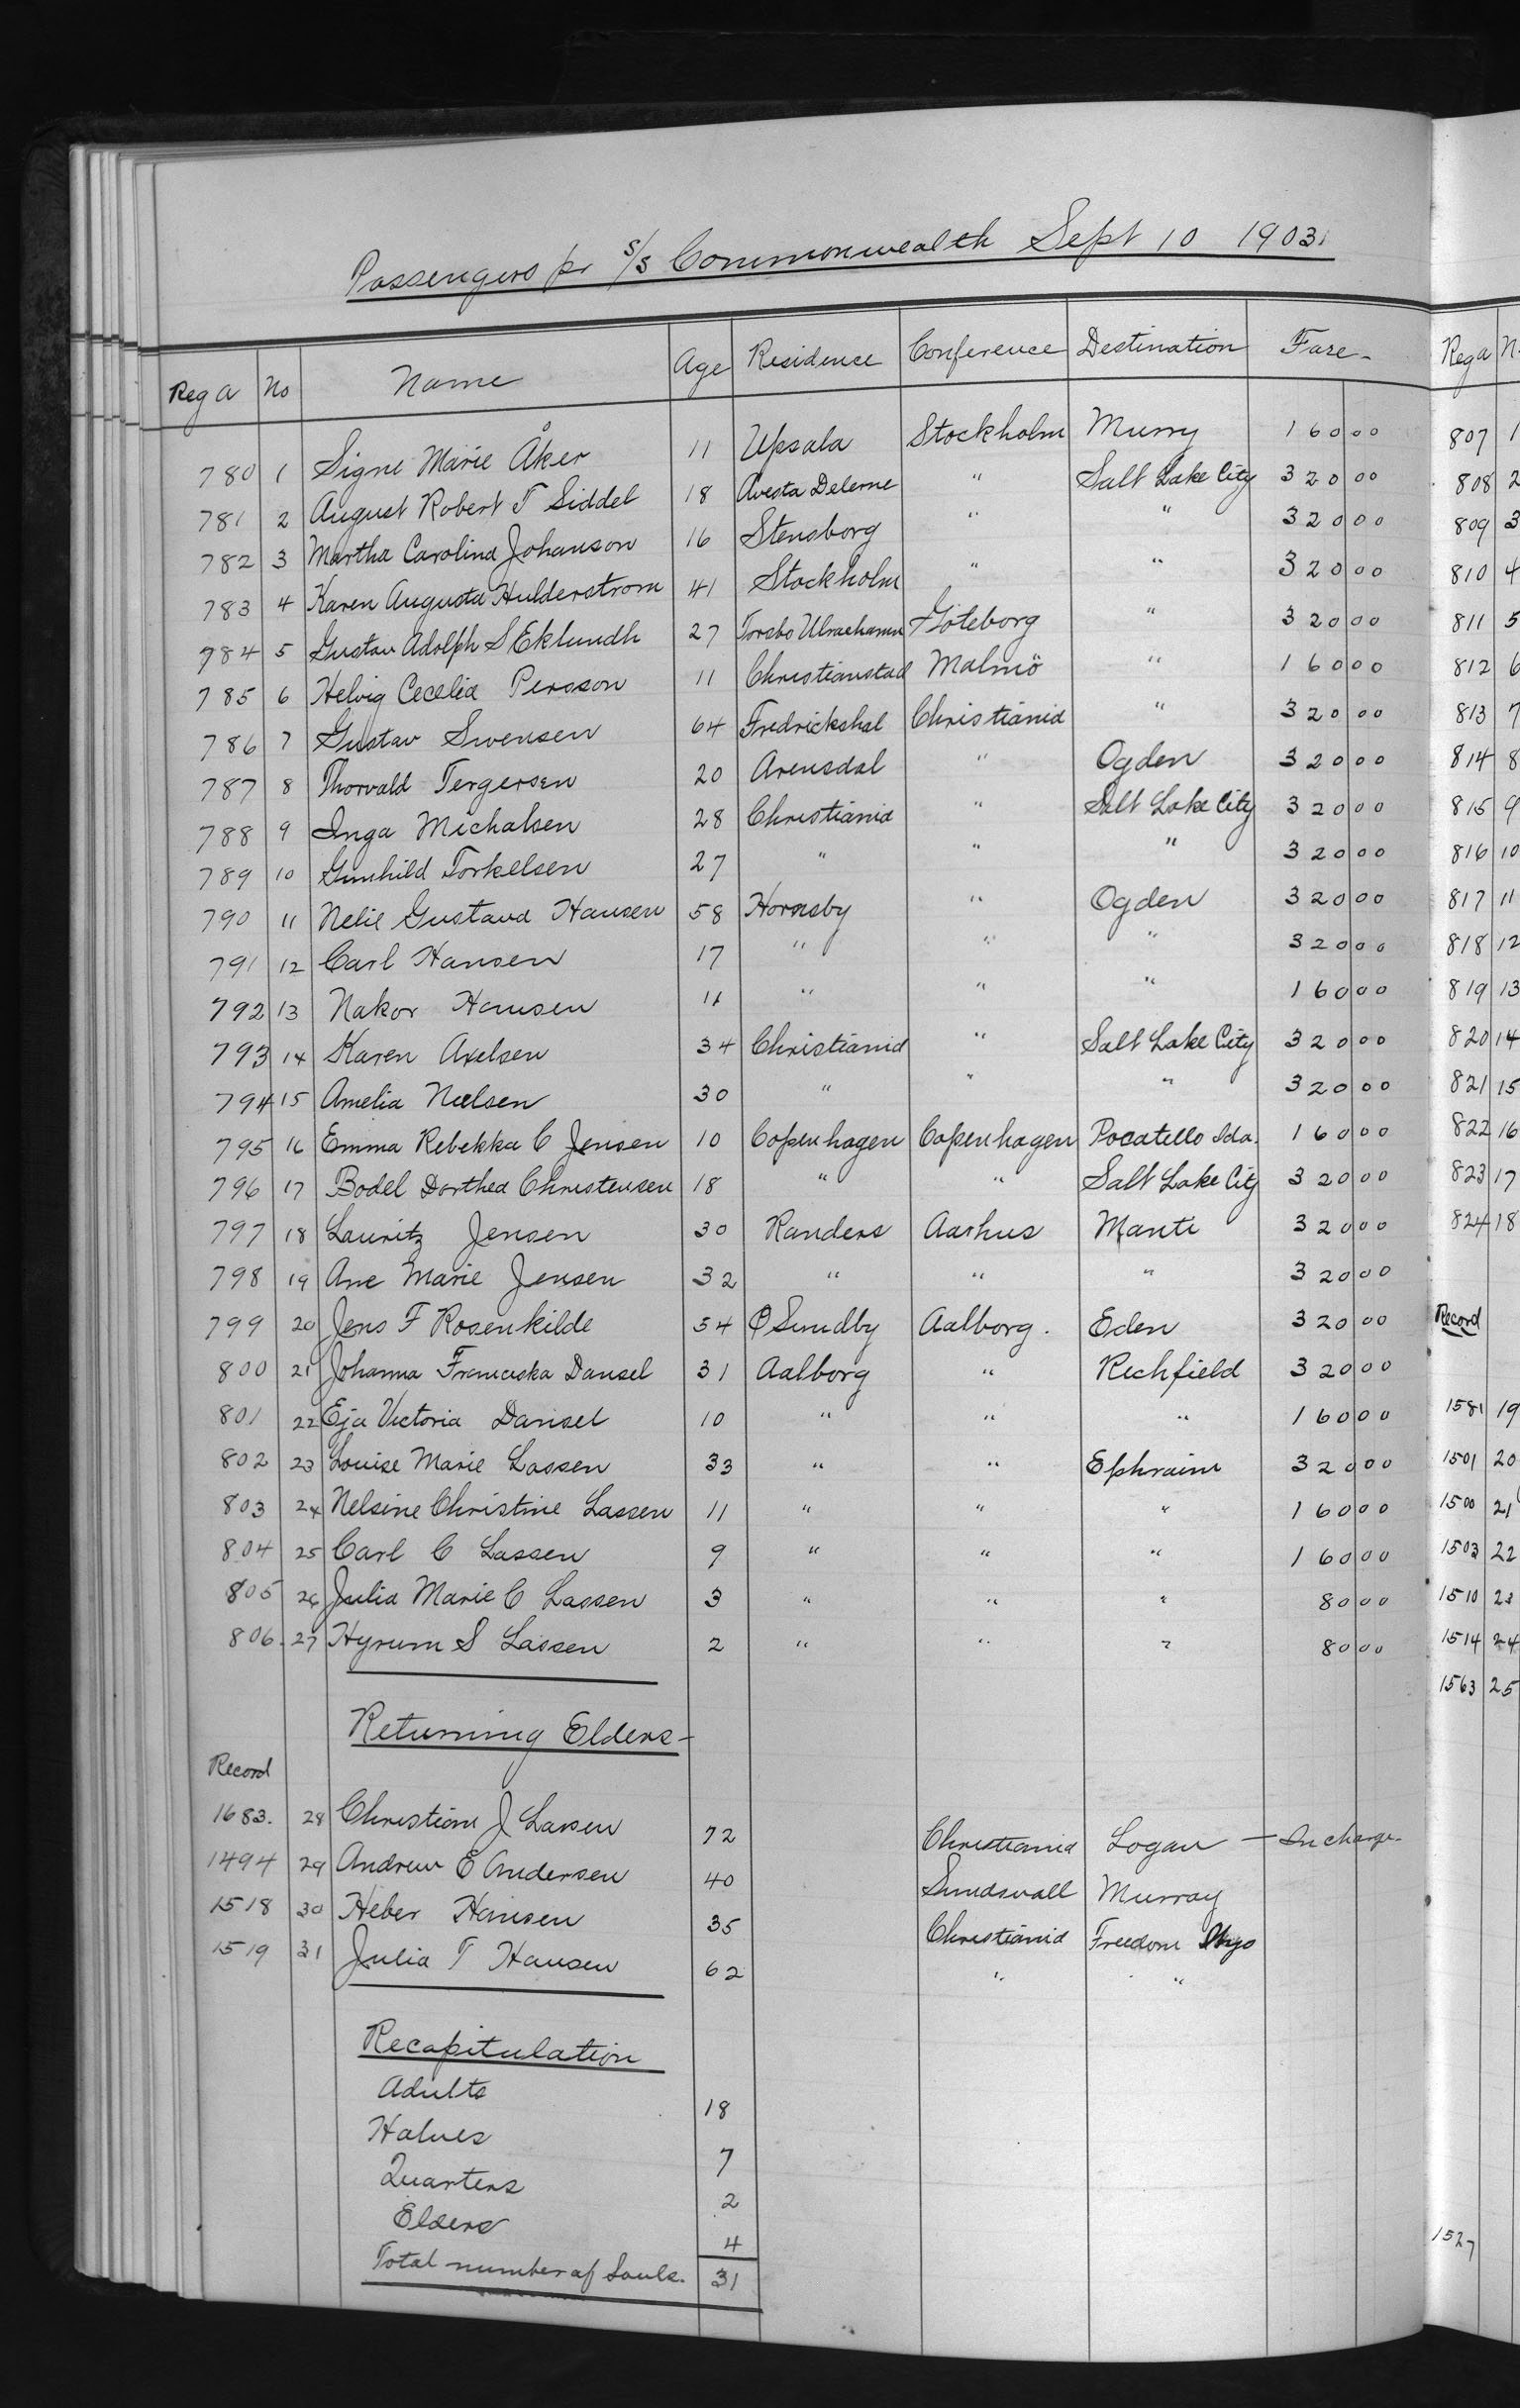 Passengers pr s/s Commonwealth Sept 10 1903.
Reg a No Name Age Residence Conference Destination Fare
780 1 Signe Marie Åker 11 Upsala Stockholm Murry 160 00
781 2 August Robert T Siddel 18 Avesta Delerne " Salt Lake City 320 00
782 3 Martha Carolina Johanson 16 Stensborg " " 320 00
783 4 Karen Augusta Hulderstrom 41 Stockholm " " 320 00
784 5 Gustav Adolph S Eklundh 27 Torsbo Ulracehamn Göteborg " 320 00
785 6 Helvig Cecelia Persson 11 Christianstad Malmö " 160 00
786 7 Gustav Svensen 64 Fredrickshal Christiania " 320 00
787 8 Thorvald Tergersen 20 Arensdal " Ogden 320 00
788 9 Inga Michalsen 28 Christiania " Salt Lake City 320 00
789 10 Gunhild Torkelsen 27 " " " 320 00
790 11 Nelie Gustava Hansen 58 Hornsby " Ogden 320 00
791 12 Carl Hansen 17 " " " 320 00
792 13 Nakor Hansen 11 " " " 160 00
793 14 Karen Axelsen 34 Christiania " Salt Lake City 320 00
794 15 Amelia Nielsen 30 " " " 320 00
795 16 Emma Rebekka C Jensen 10 Copenhagen Copenhagen Pocatello Ida. 160 00
796 17 Bodel Dorthea Christensen 18 " " Salt Lake City 320 00
797 18 Lauritz Jensen 30 Randers Aarhus Manti 320 00
798 19 Ane Marie Jensen 32 " " " 320 00
799 20 Jens F Rosenkilde 54 Ø Sundby Aalborg. Eden 320 00
800 21 Johanna Franciska Dansel 31 Aalborg " Richfield 320 00
801 22 Eja Victoria Dansel 10 " " " 160 00
802 23 Louise Marie Lassen 33 " " Ephraim 320 00
803 24 Nelsine Christine Lassen 11 " " " 160 00
804 25 Carl C Lassen 9 " " " 160 00
805 26 Julia Marie C Lassen 3 " " " 80 00
806. 27 Hyrum S Lassen 2 " " " 80 00
Returning Elders-
Record
1683. 28 Christian J Larsen 72 Christiania Logan — In charge-
1494 29 Andrew E Andersen 40 Sundsvall Murray
1518 30 Heber Hansen 35 Christiania Freedom Wyo
1519 31 Julia T Hansen 62 " "
Recapitulation
Adults 18
Halves 7
Quarters 2
Elders 4
Total number of Souls. 31
Reg a N.
807 1
808 2
809 3
810 4
811 5
812 6
813 7
814 8
815 9
816 10
817 11
818 12
819 13
820 14
821 15
822 16
823 17
824 18
Record
1581 19
1501 20
1500 21
1503 22
1510 23
1514 24
1563 25
1527